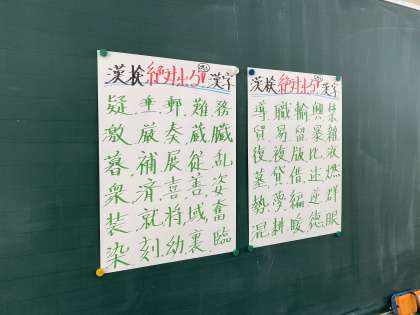 漢検絶対出る!! 漢字
疑 垂 郵 難 務
敵 厳 奏 蔵 臓
暮 補 展 従 乱
衆 済 喜 善 姿
装 就 将 域 奮
染 刻 幼 裏 臨
漢検絶対出る!! 漢字
導 職 輸 興
貿 易 留 暴 雑
復 複 版 比
墓 貸 借 迷 燃
勢 夢 編 逆 群
混 耕 暖 徳 眼